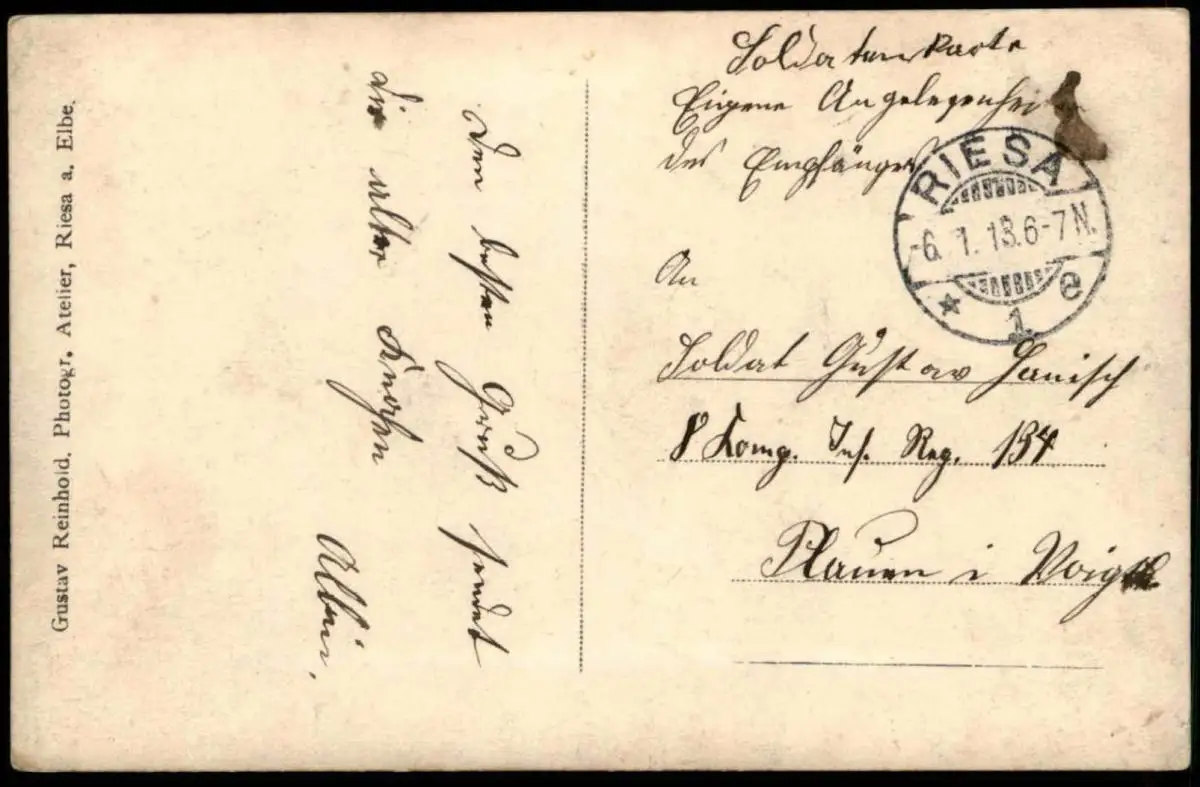 Soldatenkarte
Eigene Angelegenhei
des Empfängers
RIESA
-6. 1. 13. 6-7 N.
* 1 e
An
Soldat Gustav Hanisch
8 Komp. Inf. Reg. 134
Plauen i Voigtl.
Den besten Gruß sendet
dir alter Knochen
Albin.
Gustav Reinhold. Photogr. Atelier, Riesa a. Elbe.